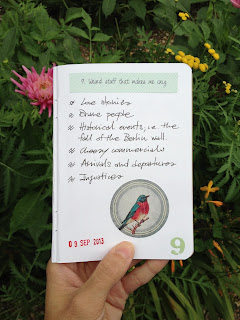 9. Weird stuff that makes me cry
Love stories
Brave people
Historical events, i.e. the
fall of the Berlin wall.
Cheesy commercials
Arrivals and departures
Injustices
03 SEP 2013
9